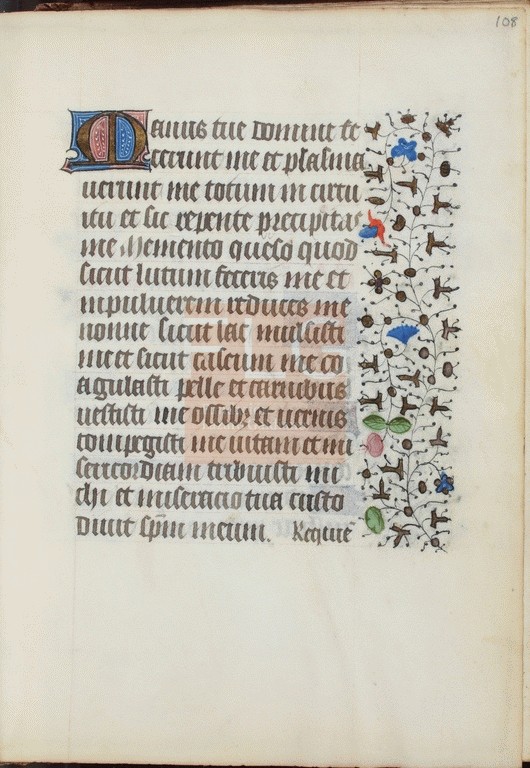 108
Manus tue domine fe
cerunt me et plasma
uerunt me totum in circu
itu et sic repente precipitas
me Memento queso quod
sicut lutum feceris me et
inpuluerem reduces me
nonne sicut lac mulsisti
me et sicut caseum me co
agulasti pelle et carnibus
uestisti me ossibꝫ et neruis
compegisti me uitam et mi
sericordiam tribuisti mi
chi et miseracio tua custo
diuit sp̄m meum. Requiē